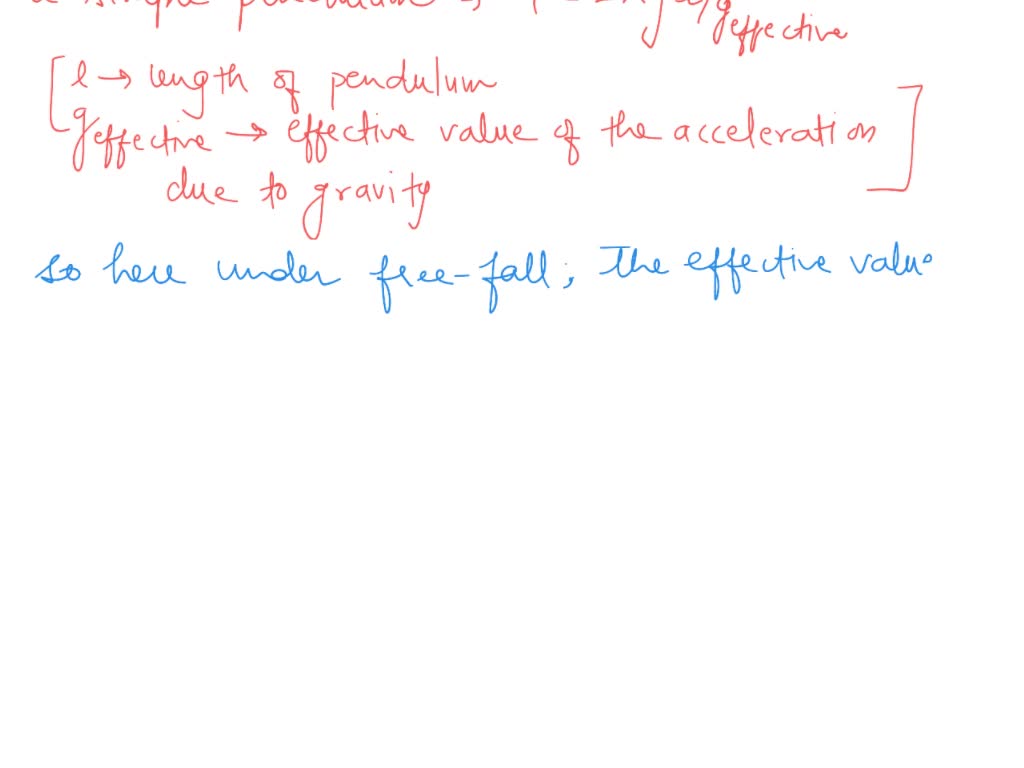 a simple pendulum
geffective
[l → length of pendulum
geffective → effective value of the acceleration
due to gravity]
so here under free-fall; The effective value